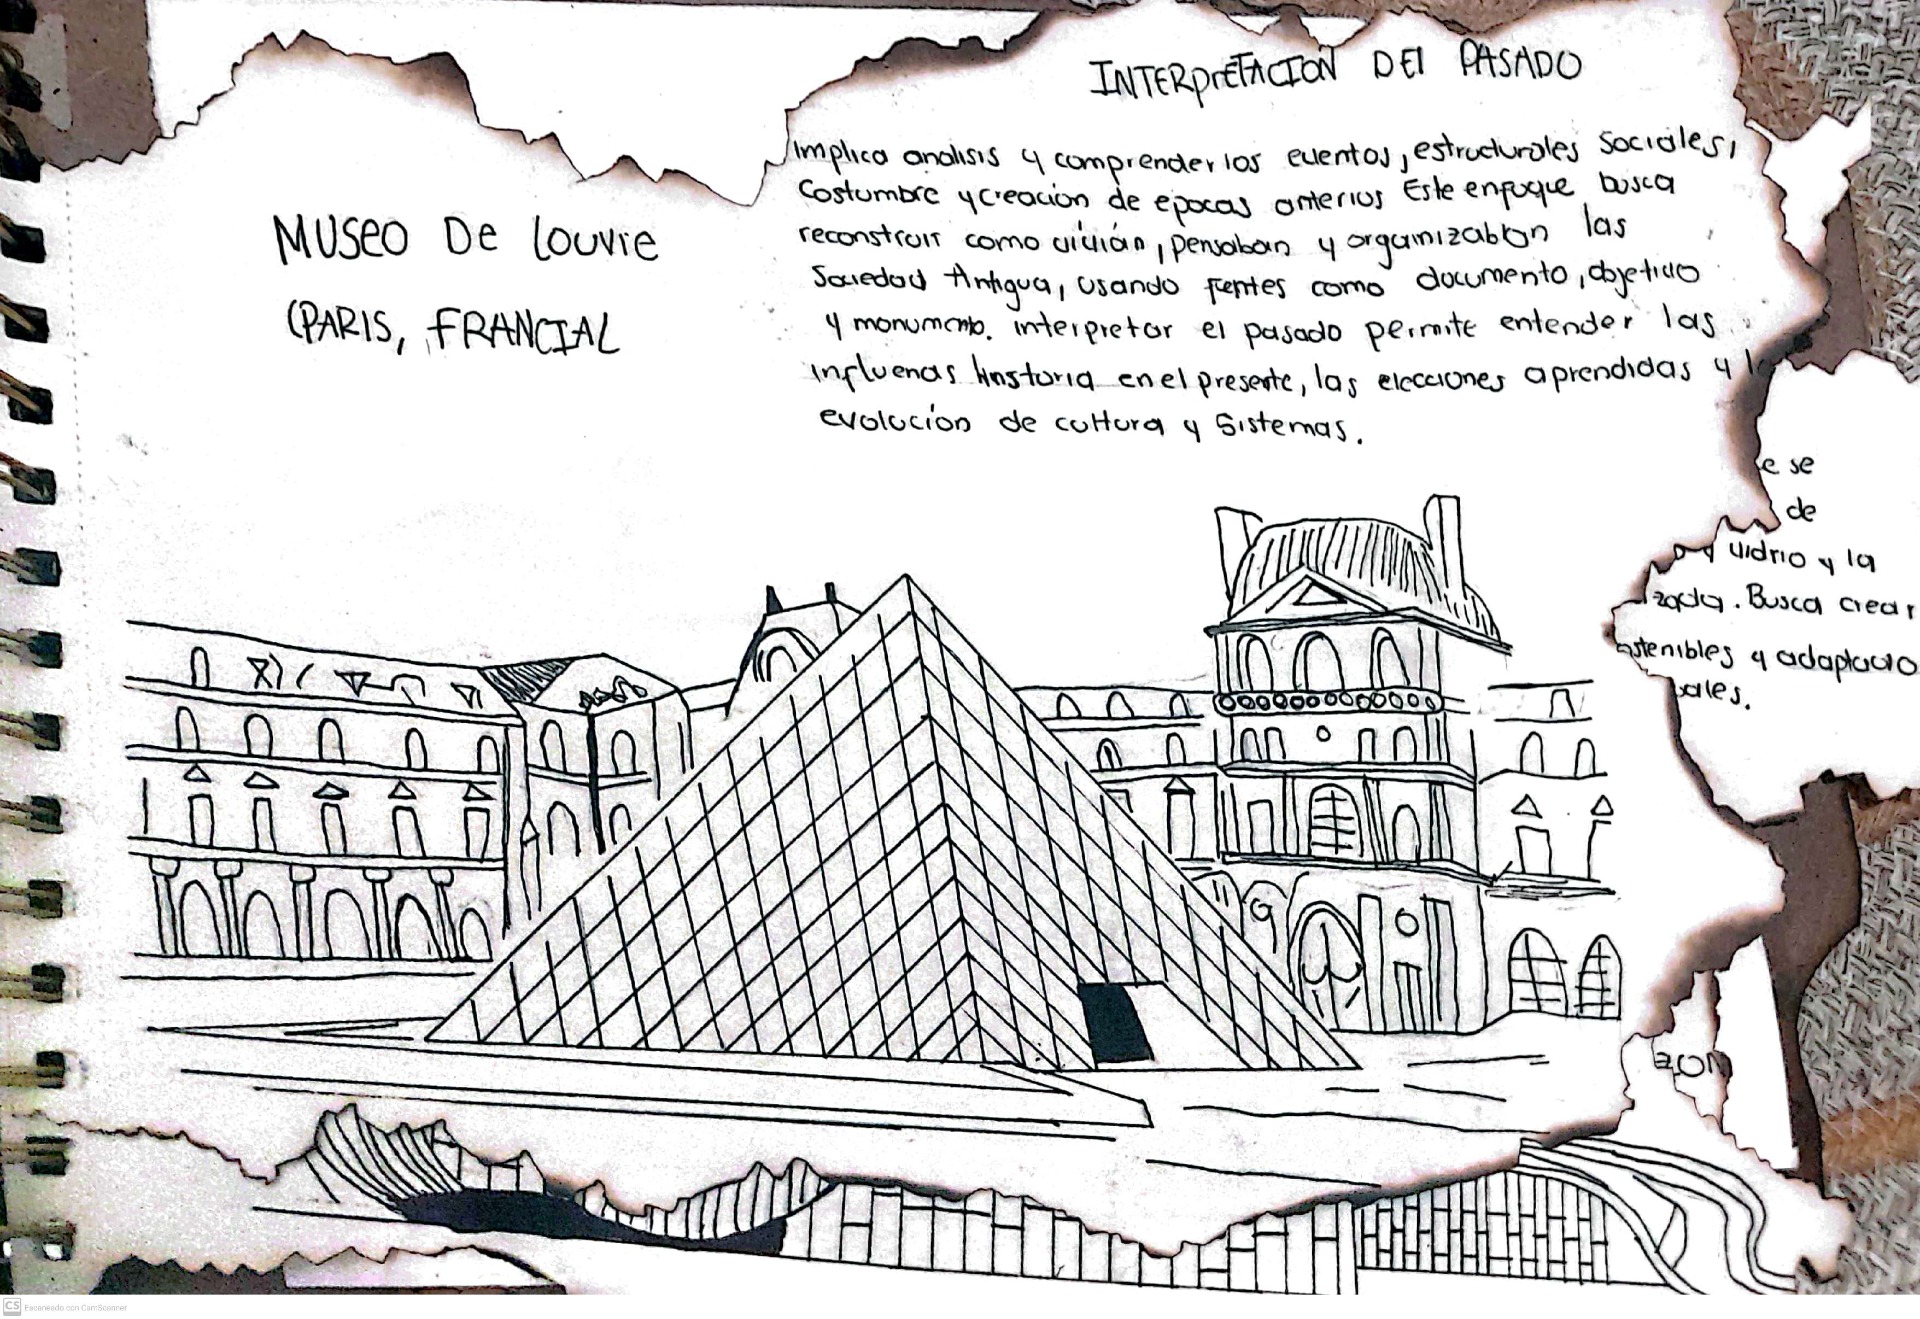 INTERPrETACION DEl PASADO
implica analisis y comprender los eventos, estructurales Sociales,
Costumbre y creación de epocas anterios Este enfoque busca
reconstruir como vivian, pensaban y organizabon las
Sociedad Antigua, usando fentes como documento, objetivo
y monumento. interpretar el pasado permite entender las
influenas historia en el presente, las elecciones aprendidas y l
evolución de cultura y Sistemas.
MUSEO De louvre
(PARIS, FRANCIAL
e se
de
y vidrio y la
izada. Busca crear
stenibles y adaptacio
ales.
ZON
CS Escaneado con CamScanner